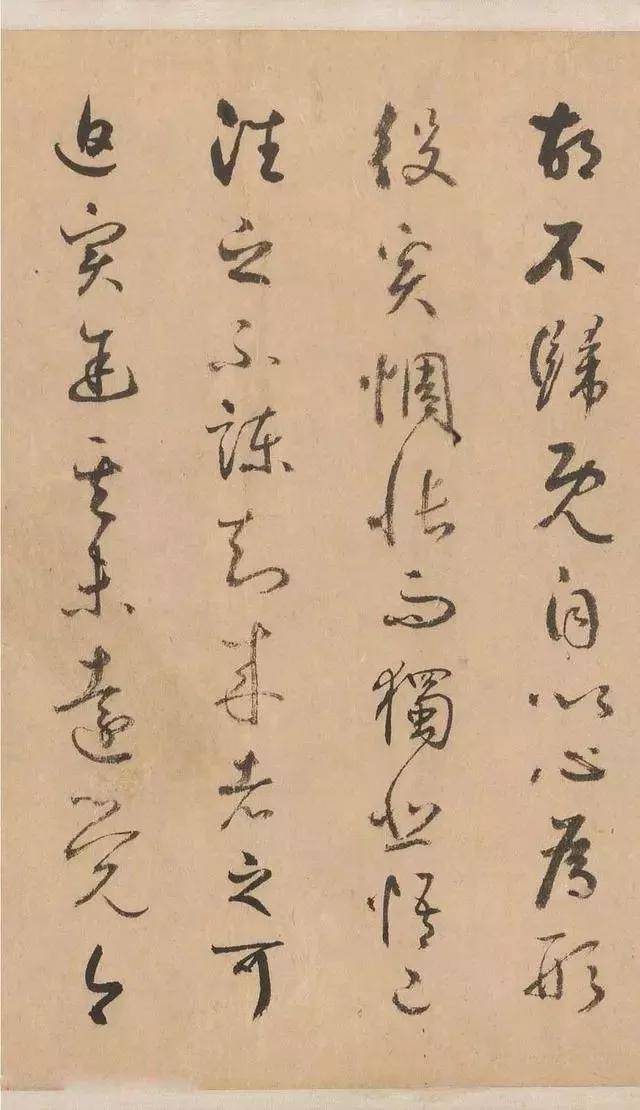 胡不歸既自以心為形
役奚惆悵而獨悲悟已
往之不諫知來者之可
追實途其未遠覺今